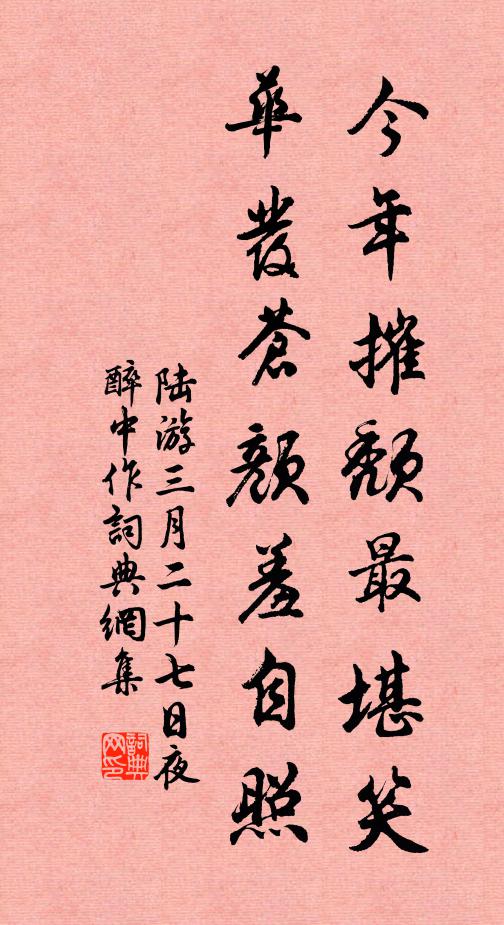 今年摧頹最堪笑
華發蒼顏羞自照
陸游三月二十七日夜
醉中作詞典網集
詞典
网印